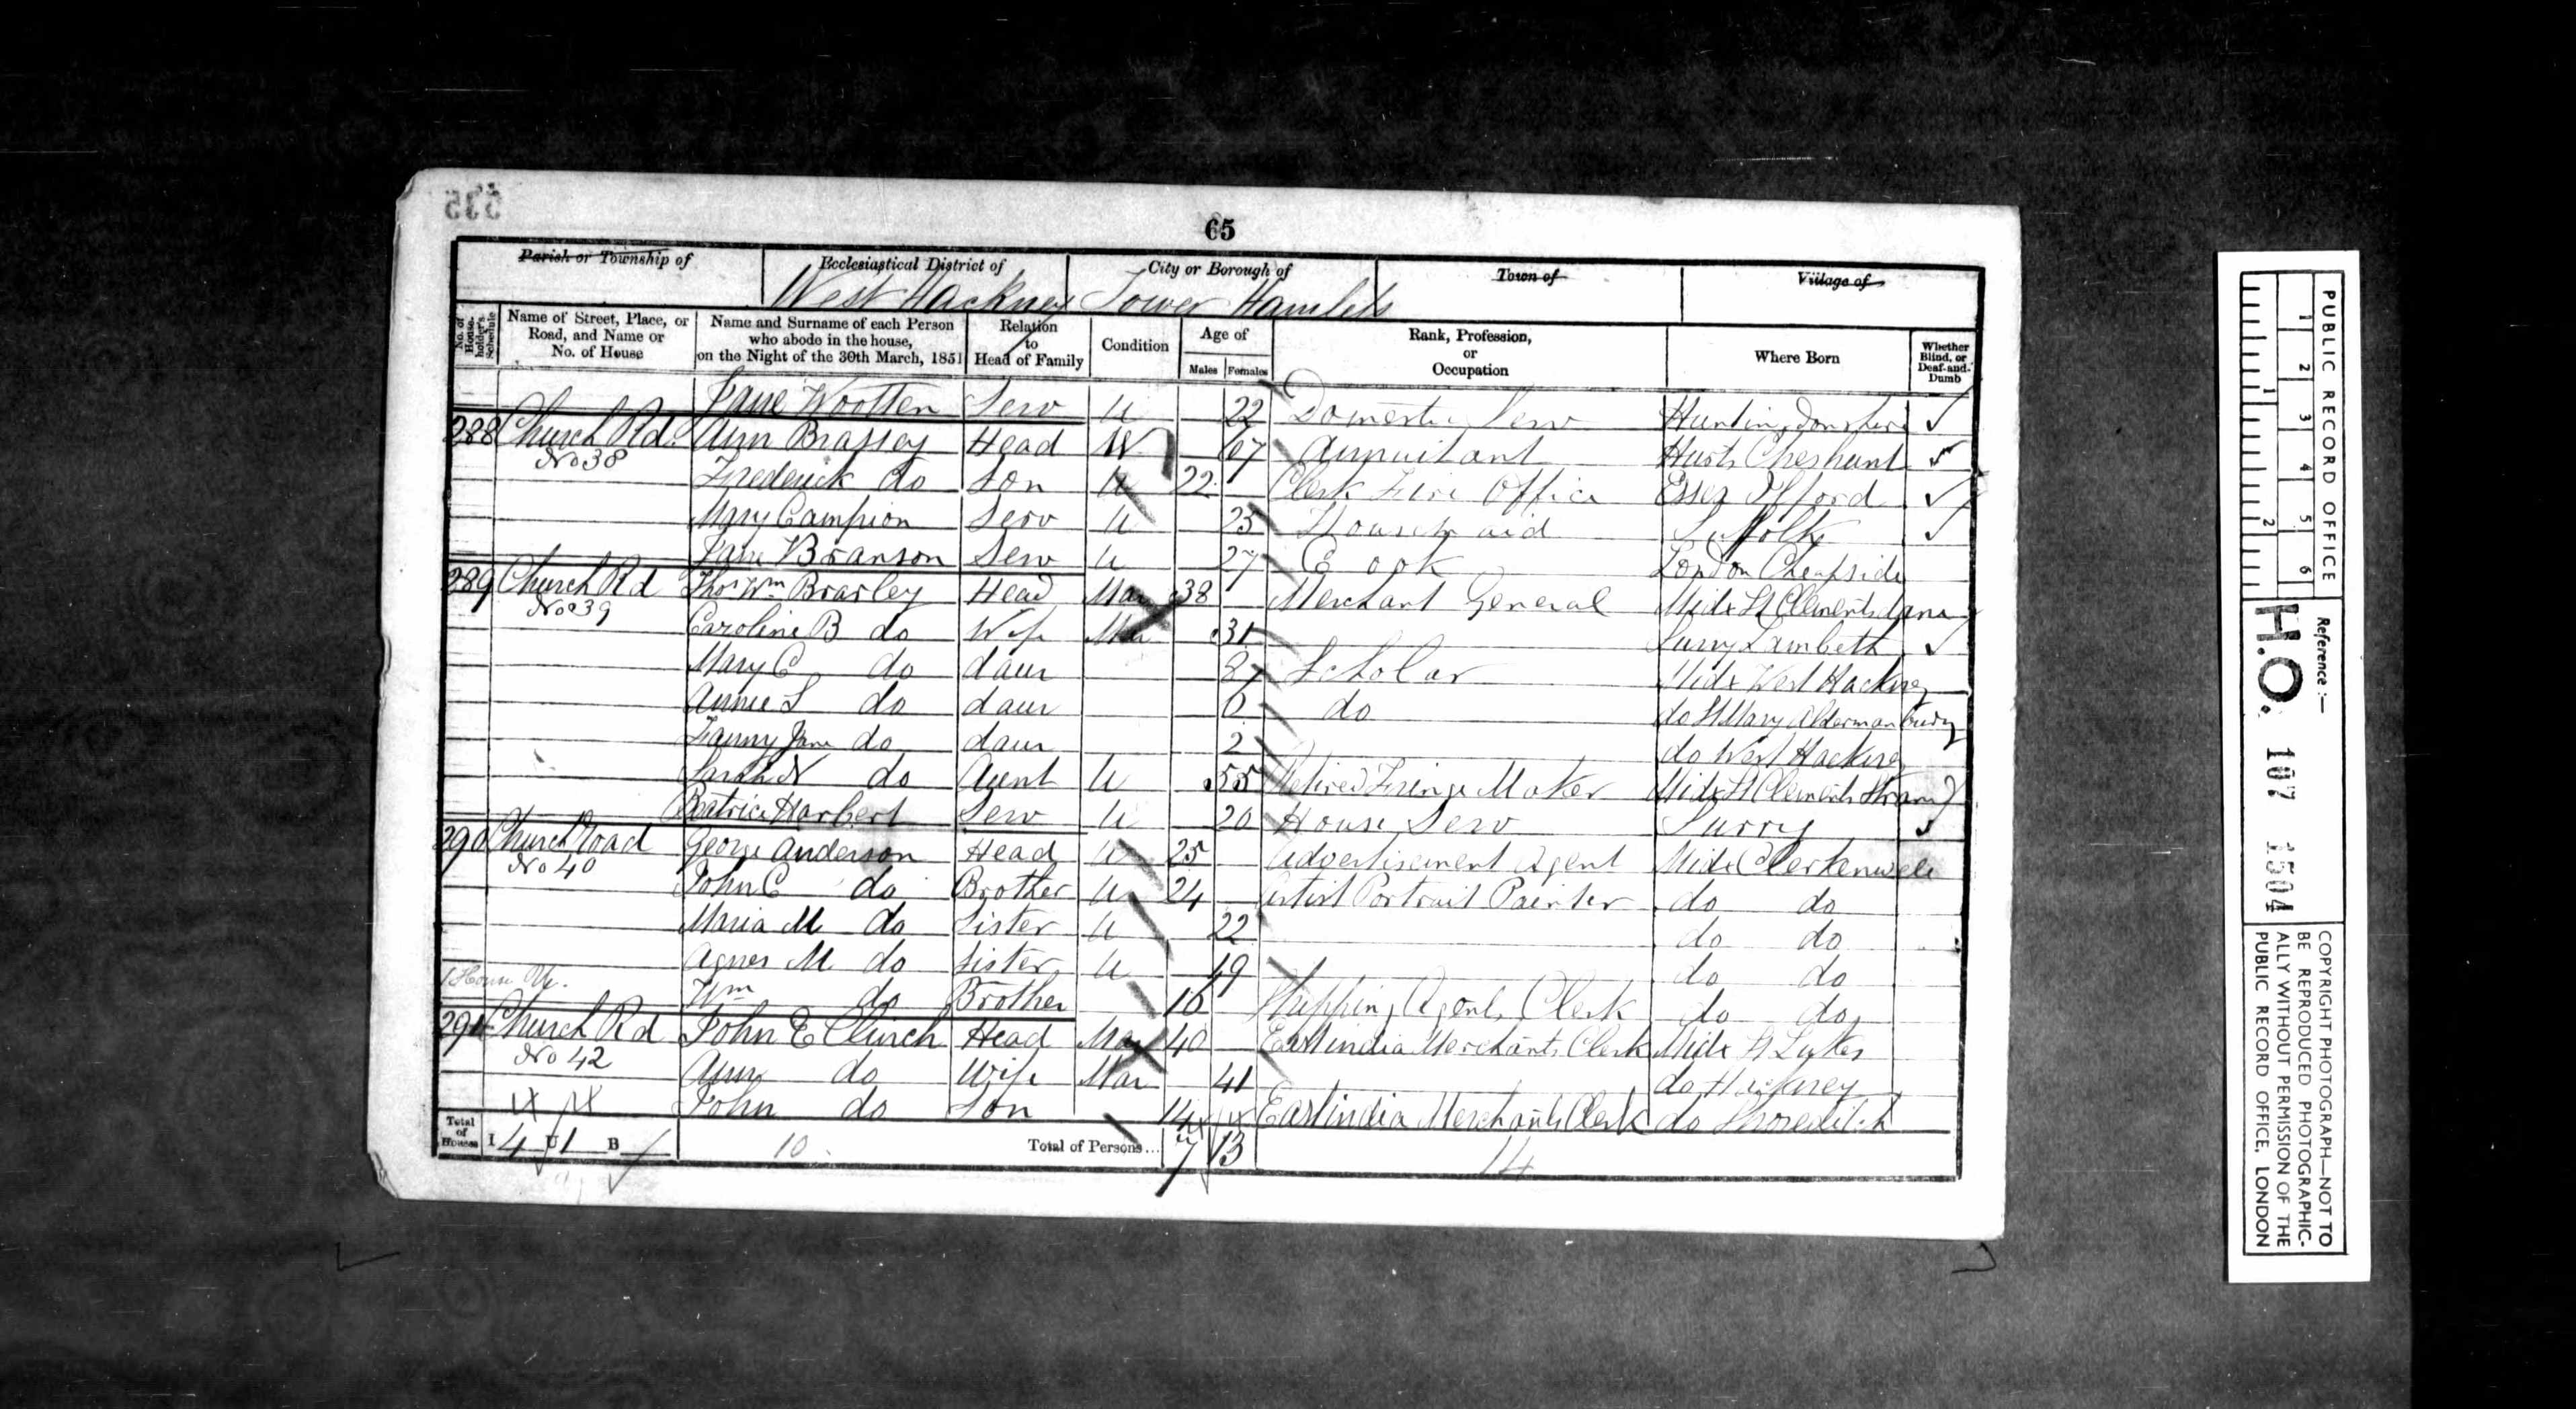 535
65
Parish or Township of Ecclesiastical District of City or Borough of Town of Village of
West Hackney Tower Hamlets
No. of House-holder's Schedule Name of Street, Place, or Road, and Name or No. of House Name and Surname of each Person who abode in the house, on the Night of the 30th March, 1851 Relation to Head of Family Condition Age of Males Females Rank, Profession, or Occupation Where Born Whether Blind, or Deaf-and-Dumb
Jane Wootten Serv U 22 Domestic Serv Huntingdonshire
288 Church Rd. Ann Brassey Head W 67 Annuitant Herts Cheshunt
No 38
Frederick do Son U 22 Clerk Fire Office Essex Ilford
Mary Campion Serv U 25 Housemaid Suffolk
Jane Branson Serv U 27 Cook London Cheapside
289 Church Rd Thos Wm Brarley Head Mar 38 Merchant General Midx St Clements dane
No 39
Caroline B do Wife Mar 31 Surry Lambeth
Mary C do daur 8 Scholar Midx West Hackney
Annie S do daur 6 do do St Mary Aldermanbury
Fanny Jane do daur 2 do West Hackney
Sarah N do Aunt U 55 Retired Fringe Maker Midx St Clements Strand
Beatrice Harbert Serv U 20 House Serv Surry
290 Church Road George Anderson Head U 25 Advertisement Agent Midx Clerkenwell
No 40
John C do Brother U 24 Artist Portrait Painter do do
Maria M do Sister U 22 do do
Agnes M do Sister U 19 do do
1 House
Wm do Brother 16 Shipping Agents Clerk do do
291 Church Rd John E Clinch Head Mar 40 East india Merchants Clerk Midx St Lukes
No 42
Ann do Wife Mar 41 do Hackney
John do Son 14 East india Merchants Clerk do Shoreditch
Total of Houses I 4 U 1 B 10 Total of Persons... 7 13 14
PUBLIC RECORD OFFICE
1 2 3 4 5 6
1 2
Reference:-
H.O. 107 1504
COPYRIGHT PHOTOGRAPH—NOT TO
BE REPRODUCED PHOTOGRAPHIC-
ALLY WITHOUT PERMISSION OF THE
PUBLIC RECORD OFFICE, LONDON